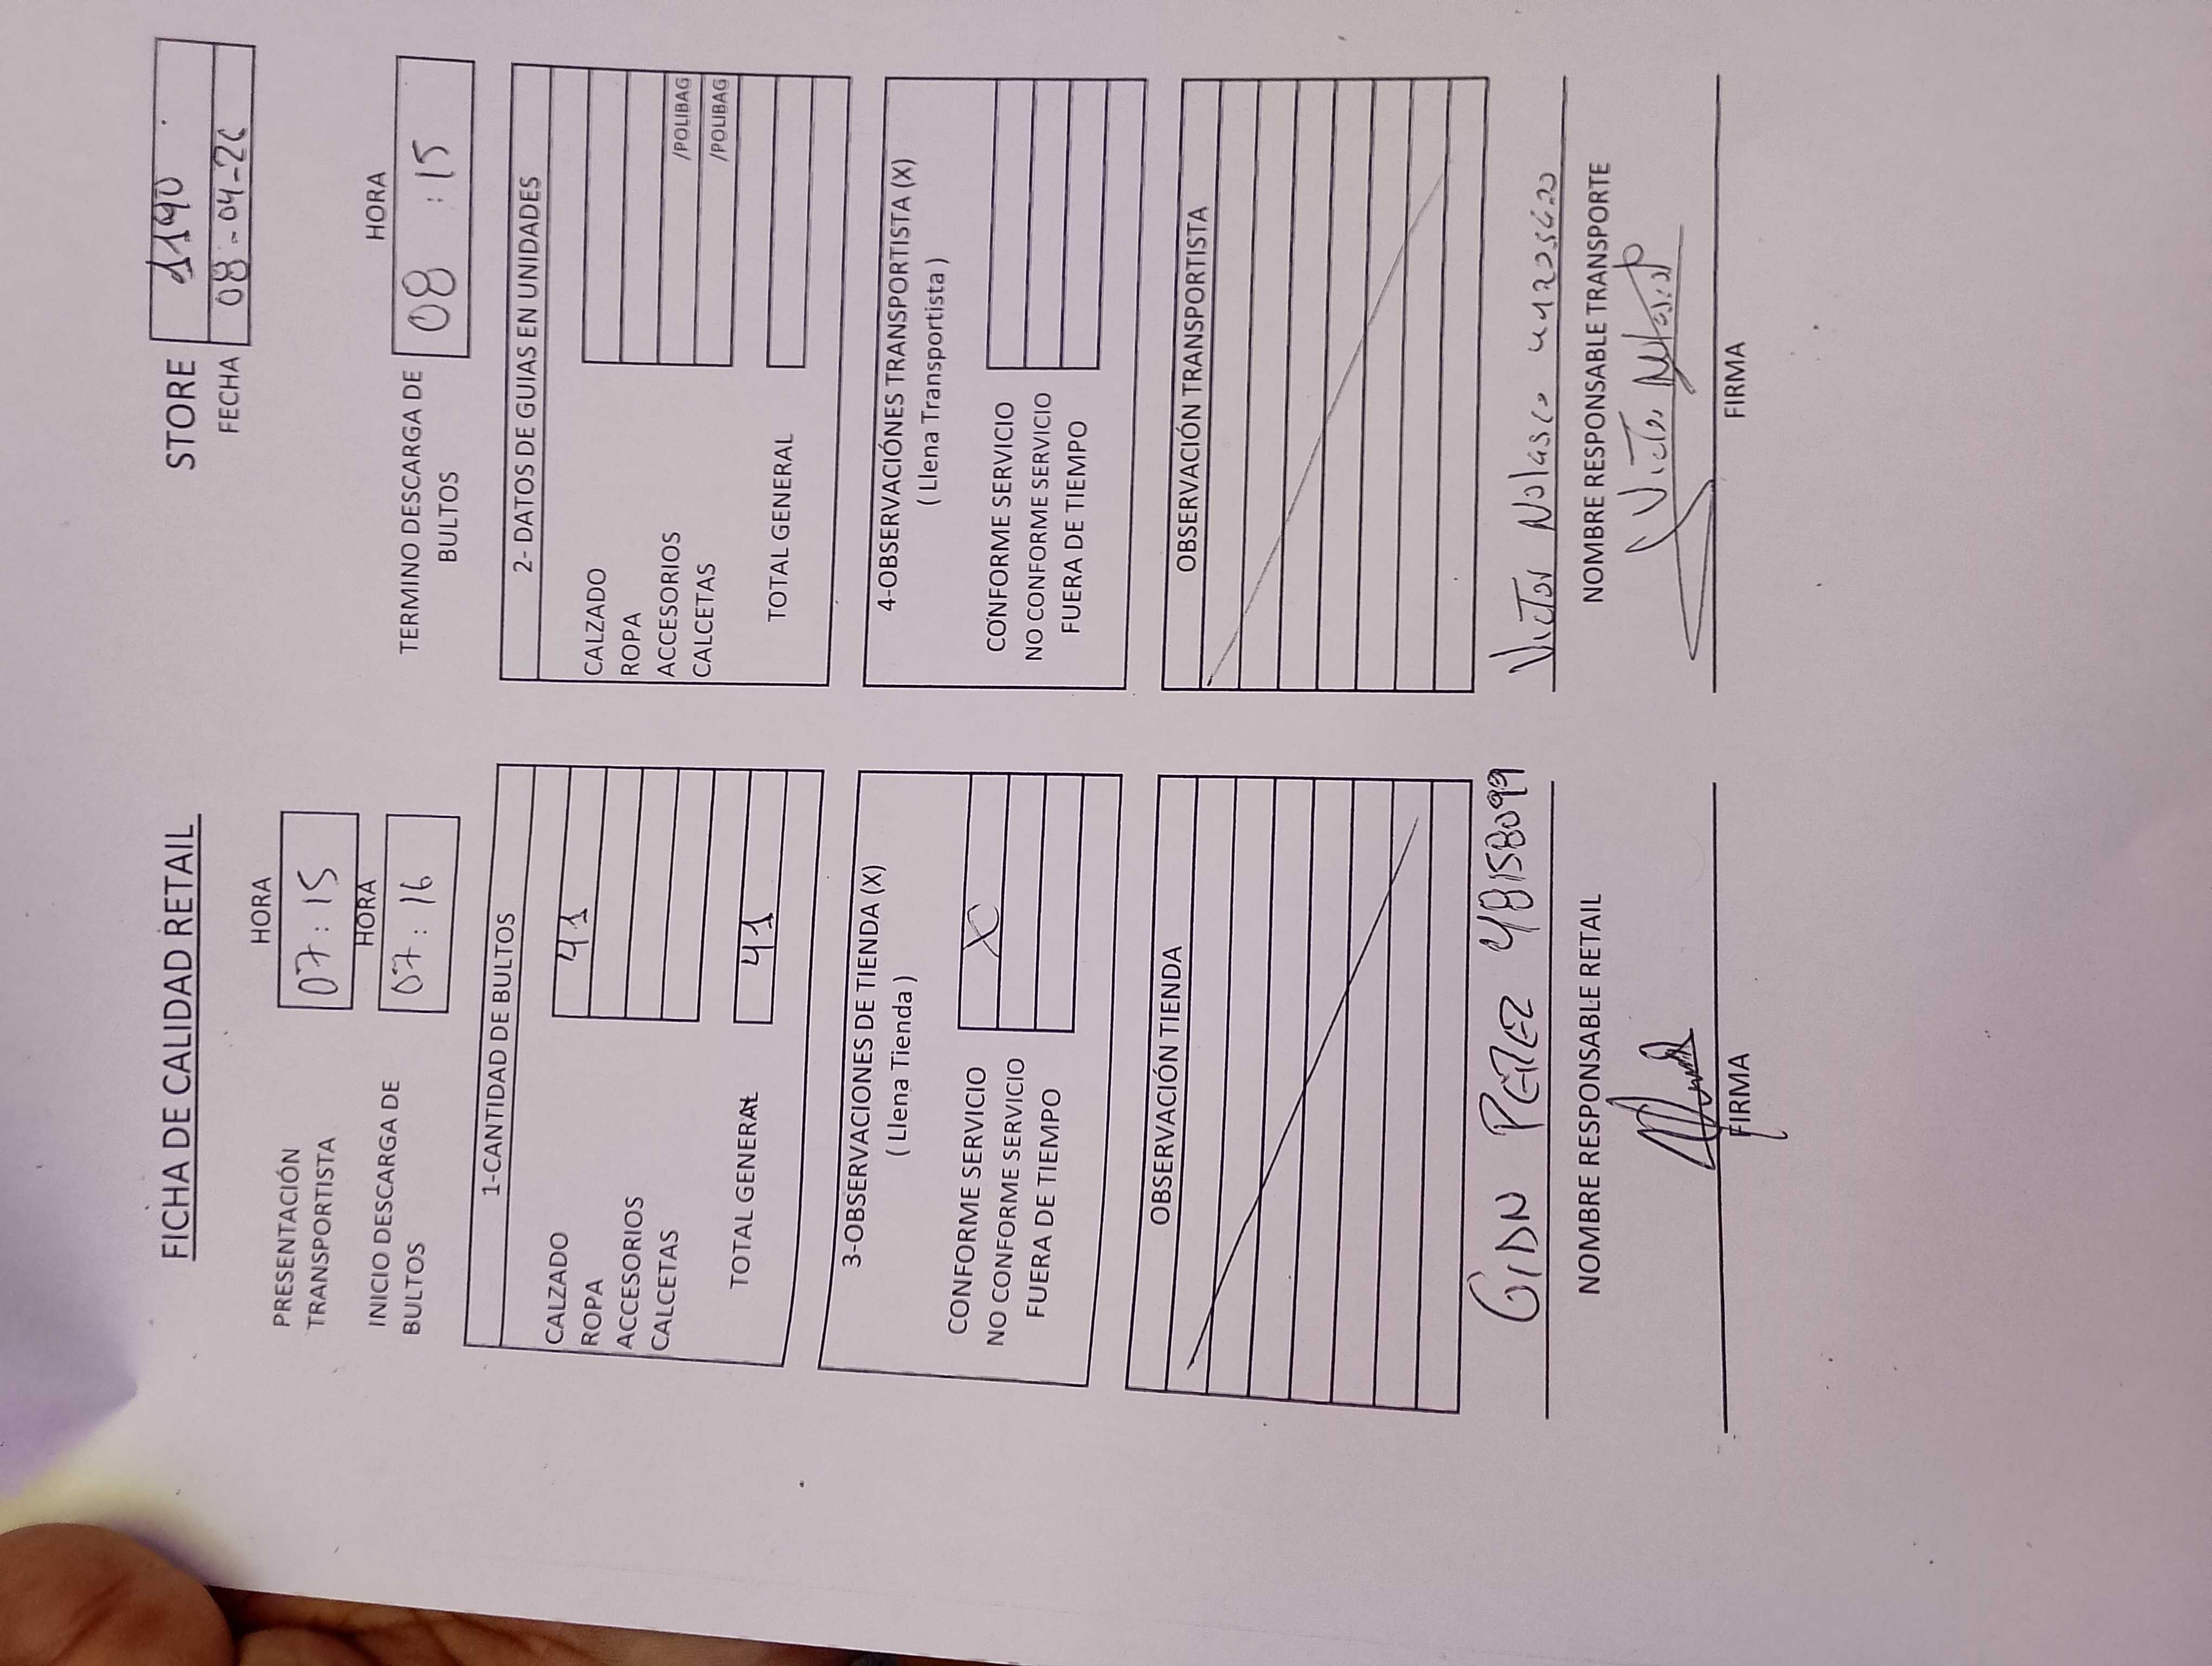 FICHA DE CALIDAD RETAIL
STORE 1190
FECHA 08-04-26
HORA
PRESENTACIÓN TRANSPORTISTA 07:15
HORA
INICIO DESCARGA DE BULTOS 07:16
HORA
TERMINO DESCARGA DE BULTOS 08:15
1-CANTIDAD DE BULTOS
CALZADO 41
ROPA
ACCESORIOS
CALCETAS
TOTAL GENERAL 41
2- DATOS DE GUIAS EN UNIDADES
CALZADO
ROPA
ACCESORIOS /POLIBAG
CALCETAS /POLIBAG
TOTAL GENERAL
3-OBSERVACIONES DE TIENDA (X)
( Llena Tienda )
CONFORME SERVICIO X
NO CONFORME SERVICIO
FUERA DE TIEMPO
4-OBSERVACIÓNES TRANSPORTISTA (X)
( Llena Transportista )
CONFORME SERVICIO
NO CONFORME SERVICIO
FUERA DE TIEMPO
OBSERVACIÓN TIENDA
OBSERVACIÓN TRANSPORTISTA
PEREZ 48158099
NOMBRE RESPONSABLE RETAIL
FIRMA
Victor Nolasco
NOMBRE RESPONSABLE TRANSPORTE
Victor
FIRMA